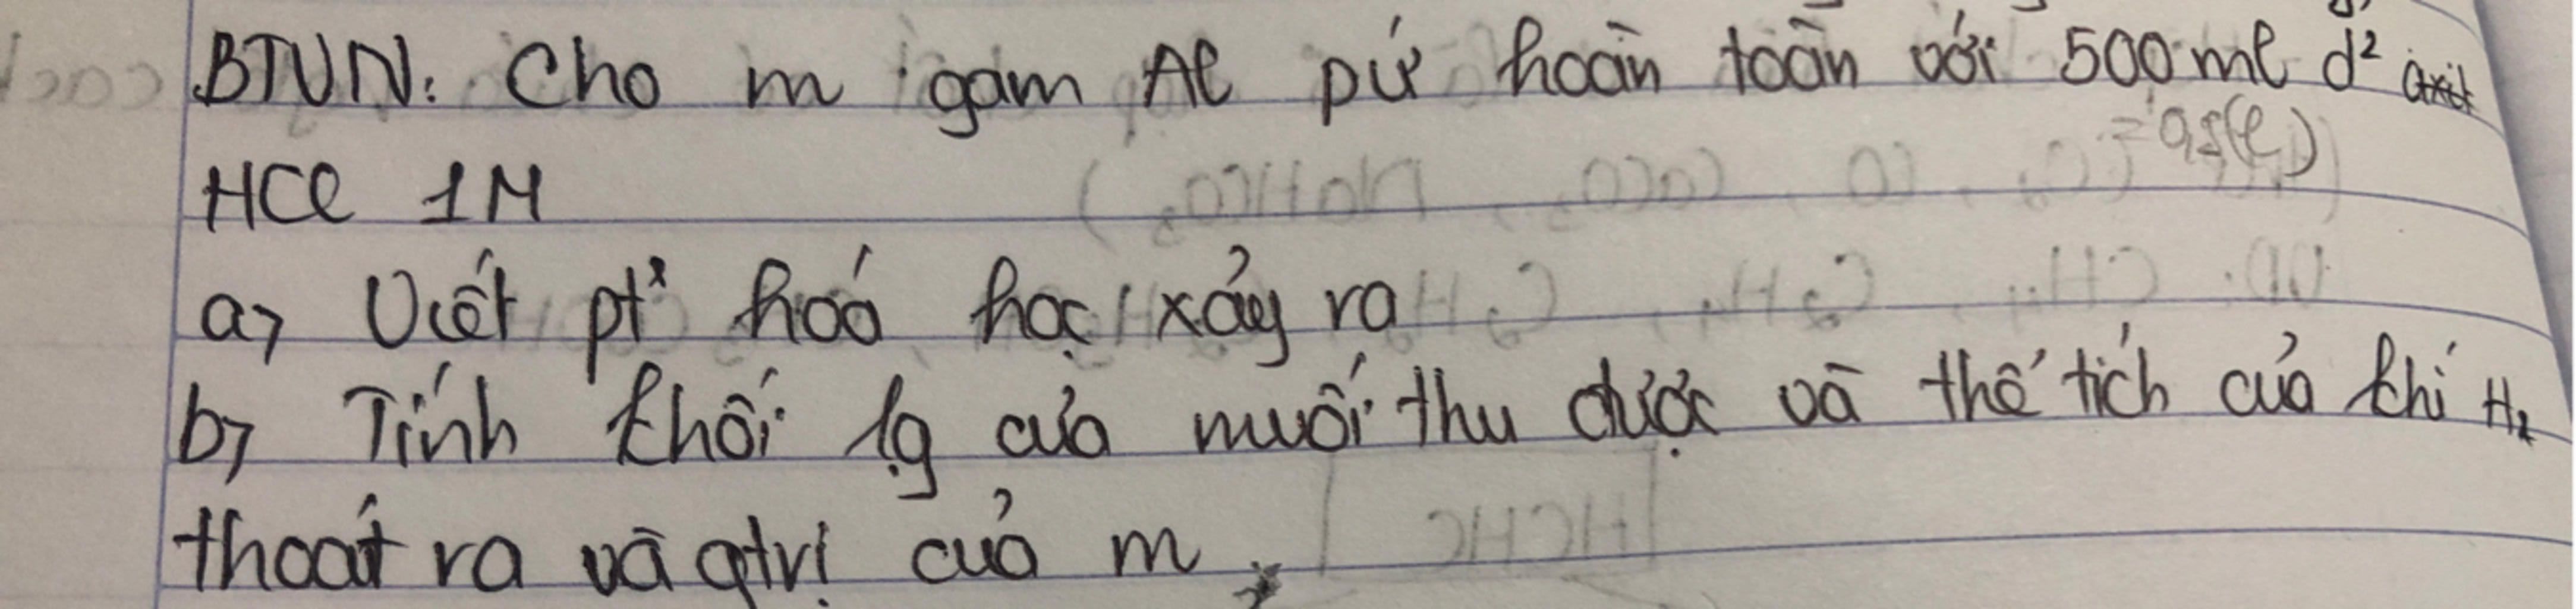 BTVN: Cho m gam Al pứ hoàn toàn với 500 ml d²
= 0,5(l)
HCl 1M
a, Viết pt² hoá học xảy ra
b, Tính khối lg của muối thu được và thể tích của khí H₂
thoát ra và gtrị của m